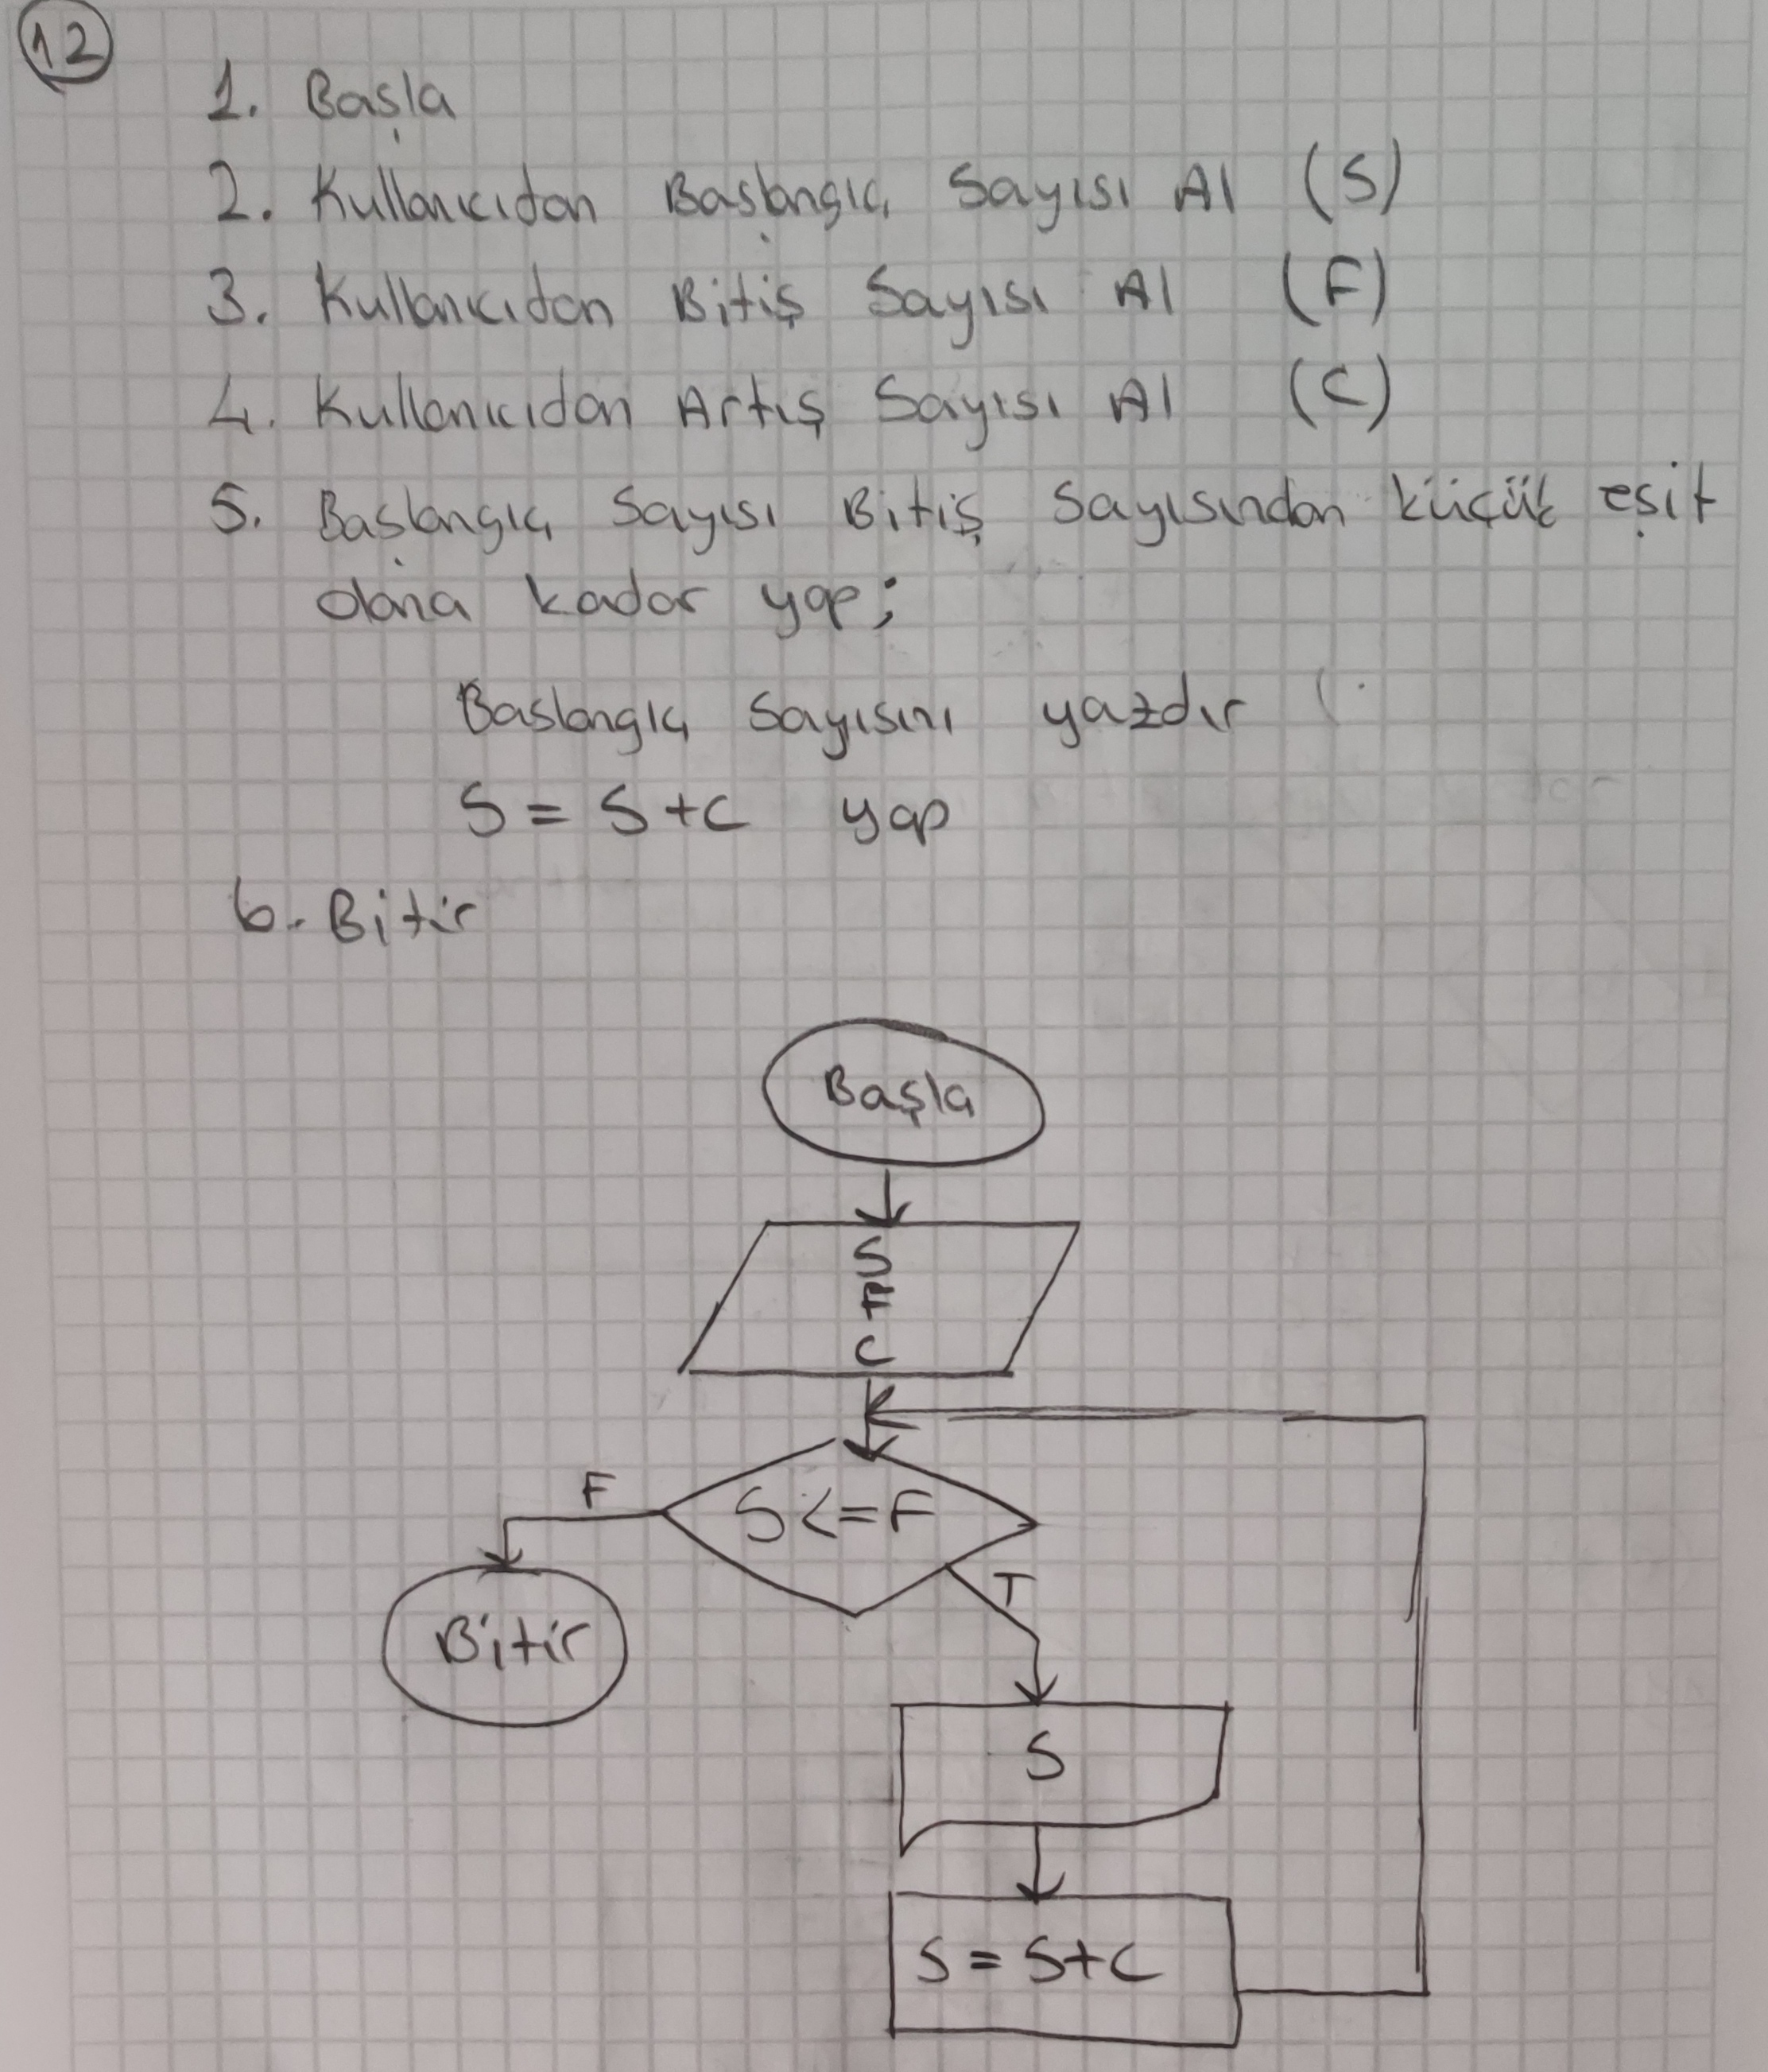 12
1. Başla
2. Kullanıcıdan Başlangıç Sayısı Al (S)
3. Kullanıcıdan Bitiş Sayısı Al (F)
4. Kullanıcıdan Artış Sayısı Al (C)
5. Başlangıç Sayısı Bitiş Sayısından küçük eşit
olana kadar yap;
Baslangıç Sayısını yazdır
S = S+C yap
6. Bitir
Başla
S
F
C
S<=F
F
T
Bitir
S
S = S+C